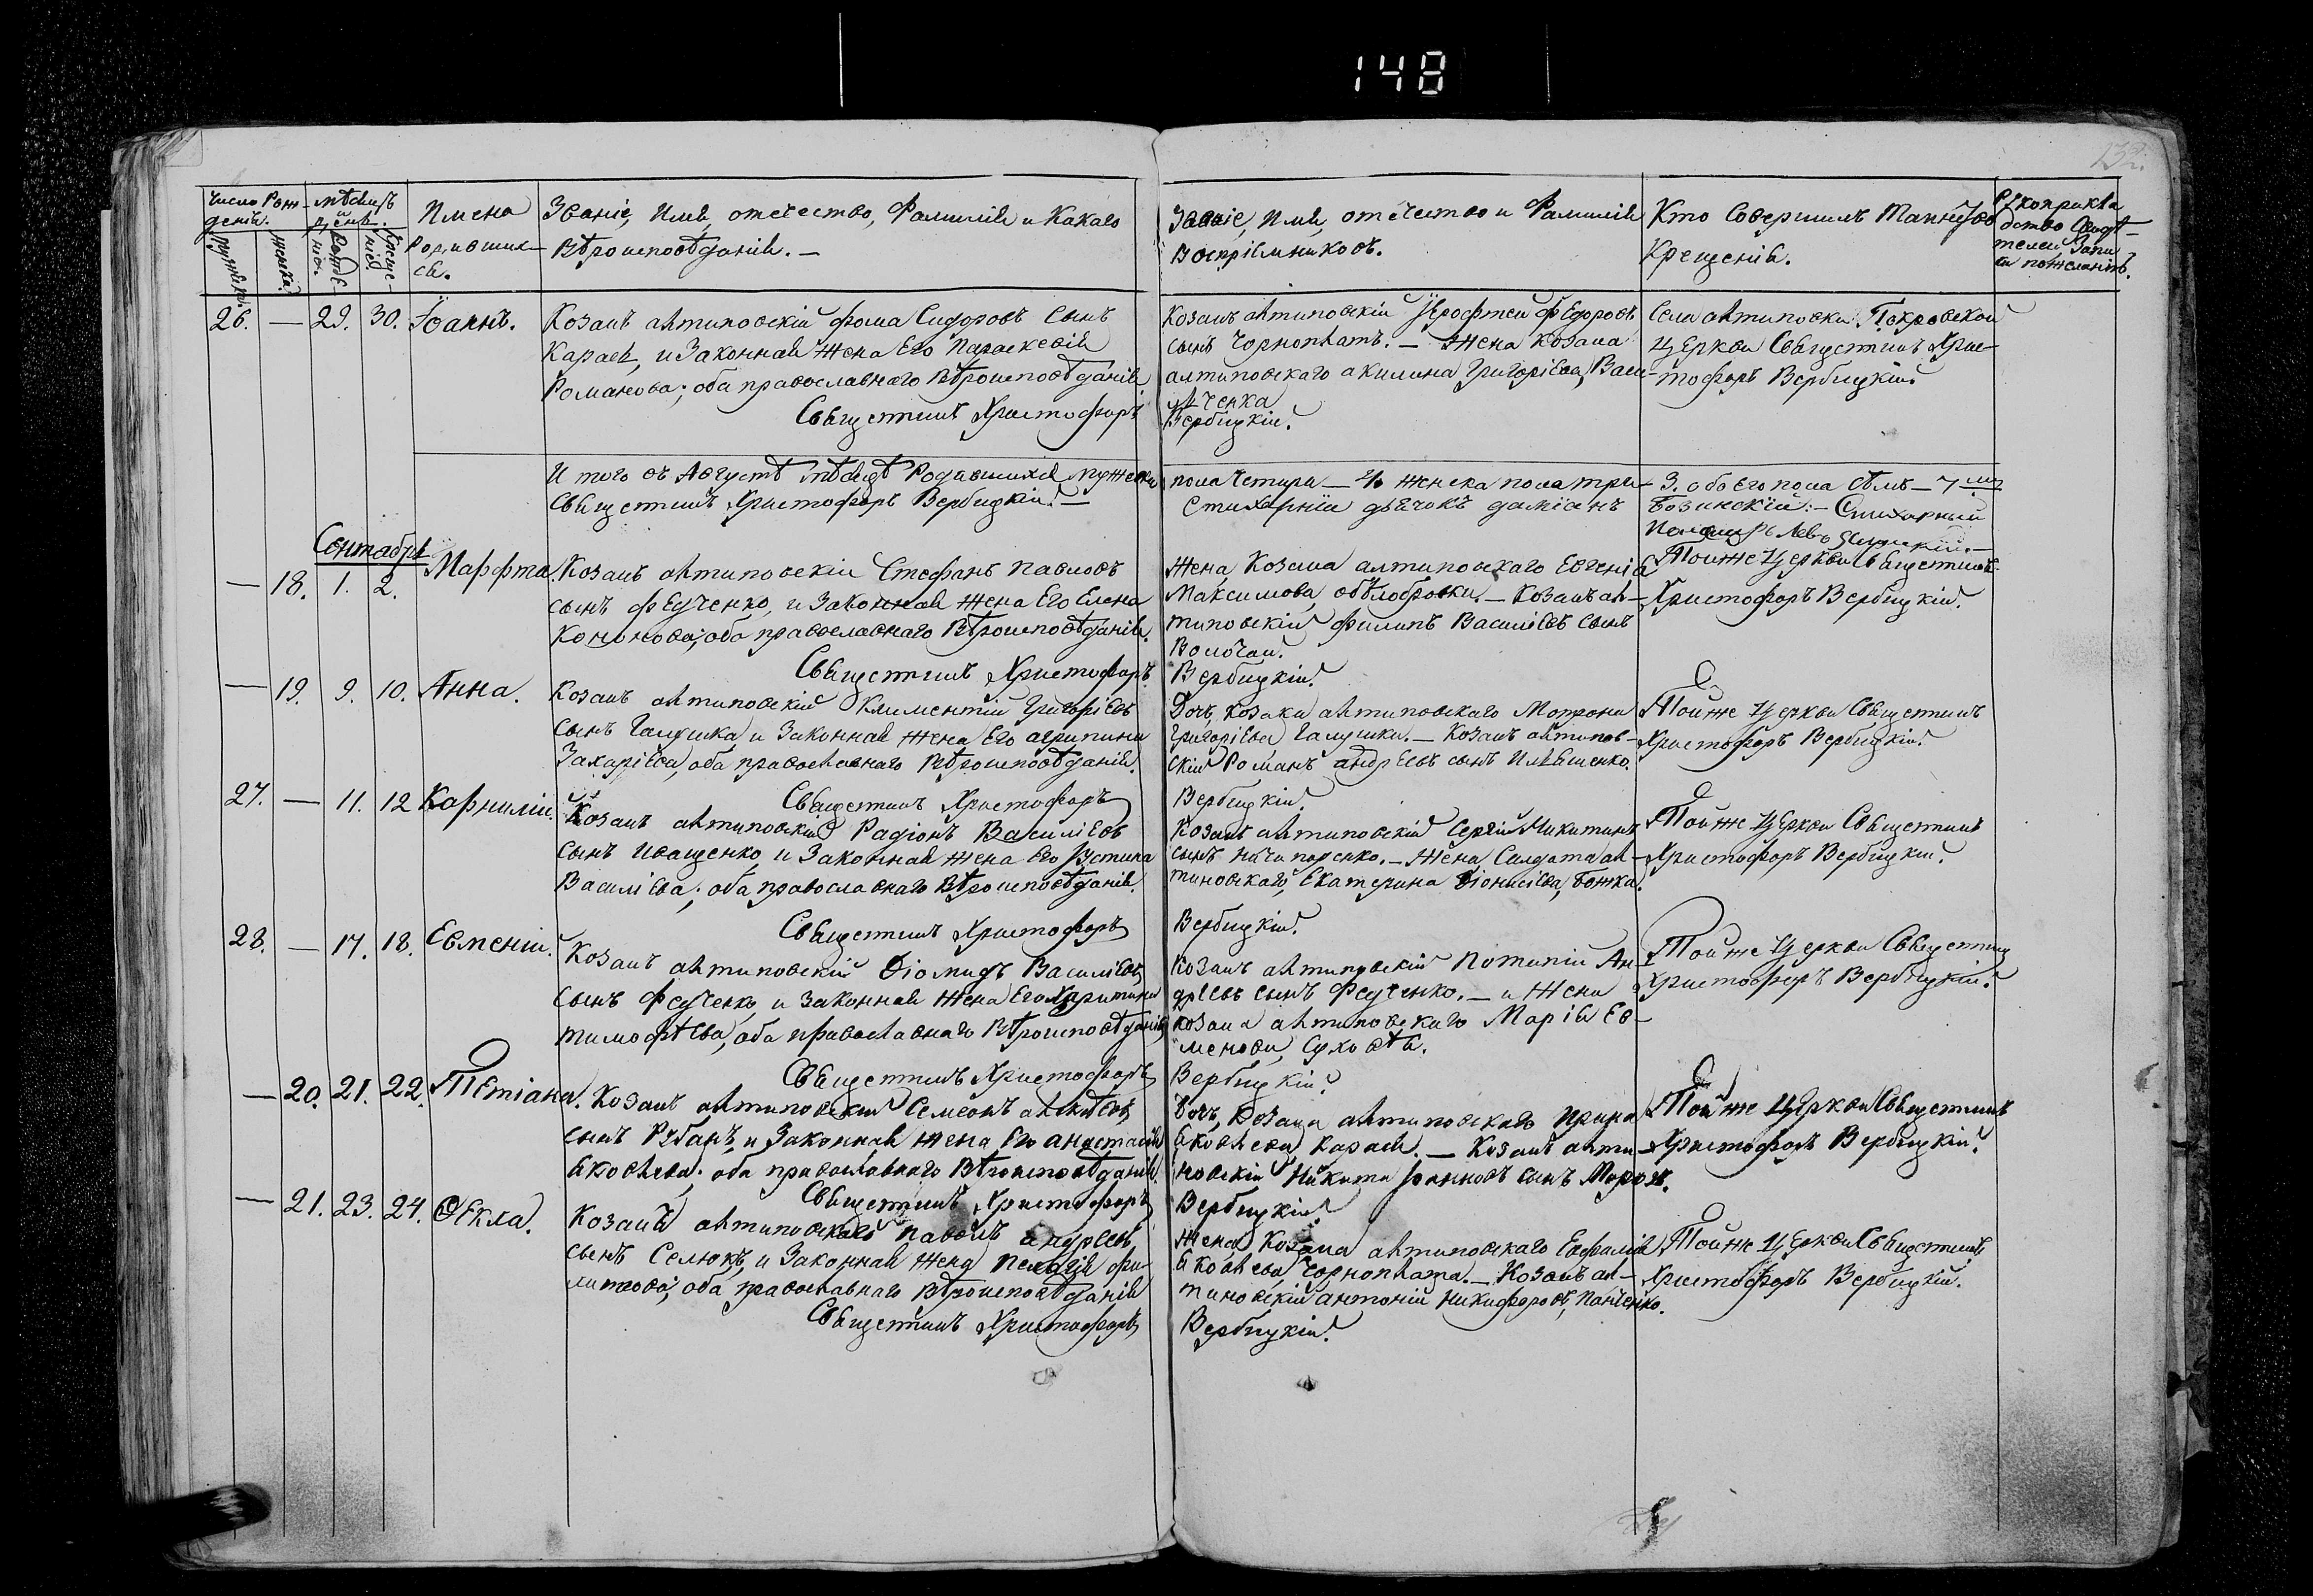 148
132.
Число Рож-
деній.
Мужеска.
Женска.
Мѣсяцъ
и день.
Рожде
нія.
Креще-
нія.
Имена
Родивших-
ся.
Званіе, Имя, отечество, Фамилія и Какаго
Вѣроисповѣданія. —
Званіе, Имя, отечество и Фамилія
Воспріемниковъ.
Кто Совершилъ Таинство
Крещенія.
Рукоприкла
дство Свидѣ-
телей Запи
си по желанію.
26. — 29. 30. Іоаннъ.
Козакъ антиповскій Фома Сидоровъ Сынъ
Караев, и Законная Жена Его Параскевія
Романова; оба православнаго Вѣроисповѣданія
Священникъ Христофоръ
Козакъ антиповскій Іерофтей Федоровъ
сынъ Чорноплатъ. — Жена козака
антиповскаго акилина Григоріева, Васи-
льченка
Вербицкій.
Села антиповки Покровской
Церкви Священникъ Хрис-
тофоръ Вербицкій.
И того въ Августѣ мѣсяцѣ Родившихся мужеска
Священникъ Христофоръ Вербицкій. —
пола Четыри — 4. женска пола три
Стихарный дьячокъ даміанъ
— 3. обоего пола семь — 7
Бозинскій: — Стихарный
Пономарь Левъ
Сентабря
— 18. 1. 2. Марфта.
Козакъ антиповскій Стефанъ Павловъ
сынъ Федченко, и Законная Жена Его Елена
Кононова; оба православнаго Вѣроисповѣданія.
Священникъ Христофоръ
Жена Козака антиповскаго Евгенія
Максимова, обѣлобровка. — Козакъ ан-
типовскій Филипъ Василіевъ сынъ
Волочай.
Вербицкій.
Тойже Церкви Священникъ
Христофоръ Вербицкій.
— 19. 9. 10. Анна.
Козакъ антиповскій Климентій Григоріевъ
сынъ Галушка, и Законная Жена Его агрипина
Захаріева, оба православнаго Вѣроисповѣданія.
Священникъ Христофоръ
Дочь козака антиповскаго Мотрона
Григоріева Галушка. — Козакъ антипов-
скій Романъ андреевъ сынъ Ильяшенко.
Вербицкій.
Тойже Церкви Священникъ
Христофоръ Вербицкій.
27. — 11. 12 Карнилій.
Козакъ антиповскій Радіонъ Василіевъ
сынъ Иващенко, и Законная жена Его Іустина
Василіева; оба православнаго Вѣроисповѣданія.
Священникъ Христофоръ
Козакъ антиповскій Сергій Микитинъ
сынъ Ничипоренко. — Жена Салдата ан-
типовскаго, Екатерина Діонисіева, Божка.
Вербицкій.
Тойже Церкви Священникъ
Христофоръ Вербицкій.
28. — 17. 18. Евменій.
Козакъ антиповскій Діомидъ Василіевъ
сынъ Федченко, и Законная Жена Его Харитина
тимофѣева, оба православнаго Вѣроисповѣданія
Священникъ Христофоръ
Козакъ антиповскій Потапій Ан-
дреевъ сынъ Федченко. — и Жена
козака антиповскаго Марія Ев-
менова,
Вербицкій.
Тойже Церкви Священникъ
Христофоръ Вербицкій.
— 20. 21. 22. Тетіана.
Козакъ антиповскій Семеонъ
сынъ Рубанъ, и Законная жена Его анастасія
аковлева; оба православнаго Вѣроисповѣданія.
Священникъ Христофоръ
Дочь, козака антиповскаго Ирина
аковлева, Караев. — Козакъ анти-
повскій Никита Іоанновъ сынъ Мороз.
Вербицкій.
Тойже Церкви Священникъ
Христофоръ Вербицкій.
— 21. 23. 24. Ѳекла.
Козакъ антиповскаго Павелъ андреевъ
сынъ Селюкъ, и Законная жена Пелагія Фи-
липова; оба православнаго Вѣроисповѣданія
Священникъ Христофоръ
Жена Козака антиповскаго Евфалія
аковлева Чорноплата. — Козакъ ан-
типовскій антоній Никифоровъ, Панченко.
Вербицкій.
Тойже Церкви Священникъ
Христофоръ Вербицкій.